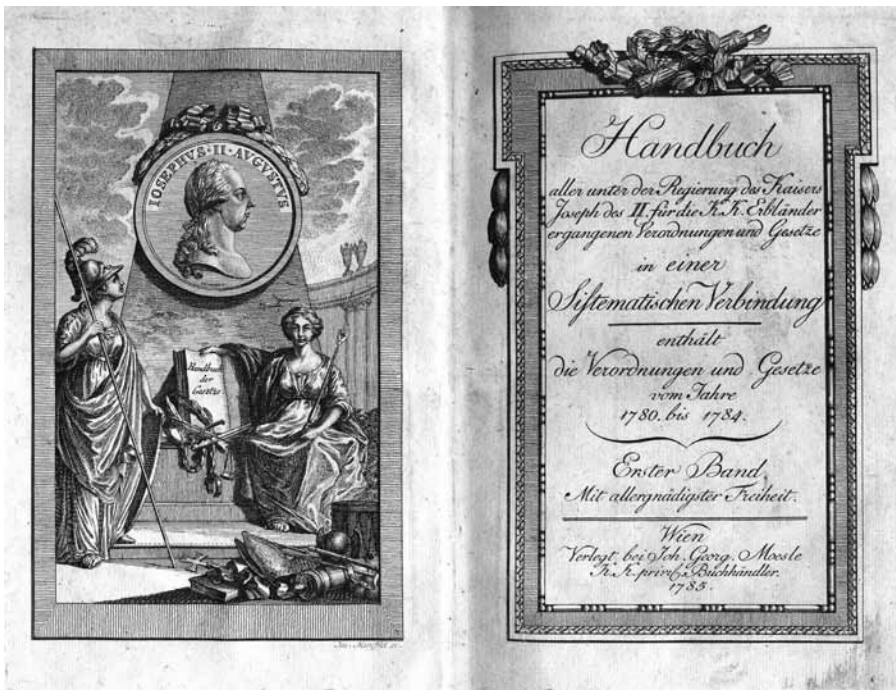 IOSEPHVS·II·AVGVSTVS
Handbuch
der
Gesetze
Handbuch
aller unter der Regierung des Kaisers
Joseph des II. für die K.K. Erbländer
ergangenen Verordnungen und Gesetze
in einer
Sistematischen Verbindung
enthält
die Verordnungen und Gesetze
vom Jahre
1780. bis 1784.
Erster Band,
Mit allergnädigster Freiheit.
Wien
Verlegt bei Joh. Georg. Moesle
K.K. privil. Buchhändler.
1785.